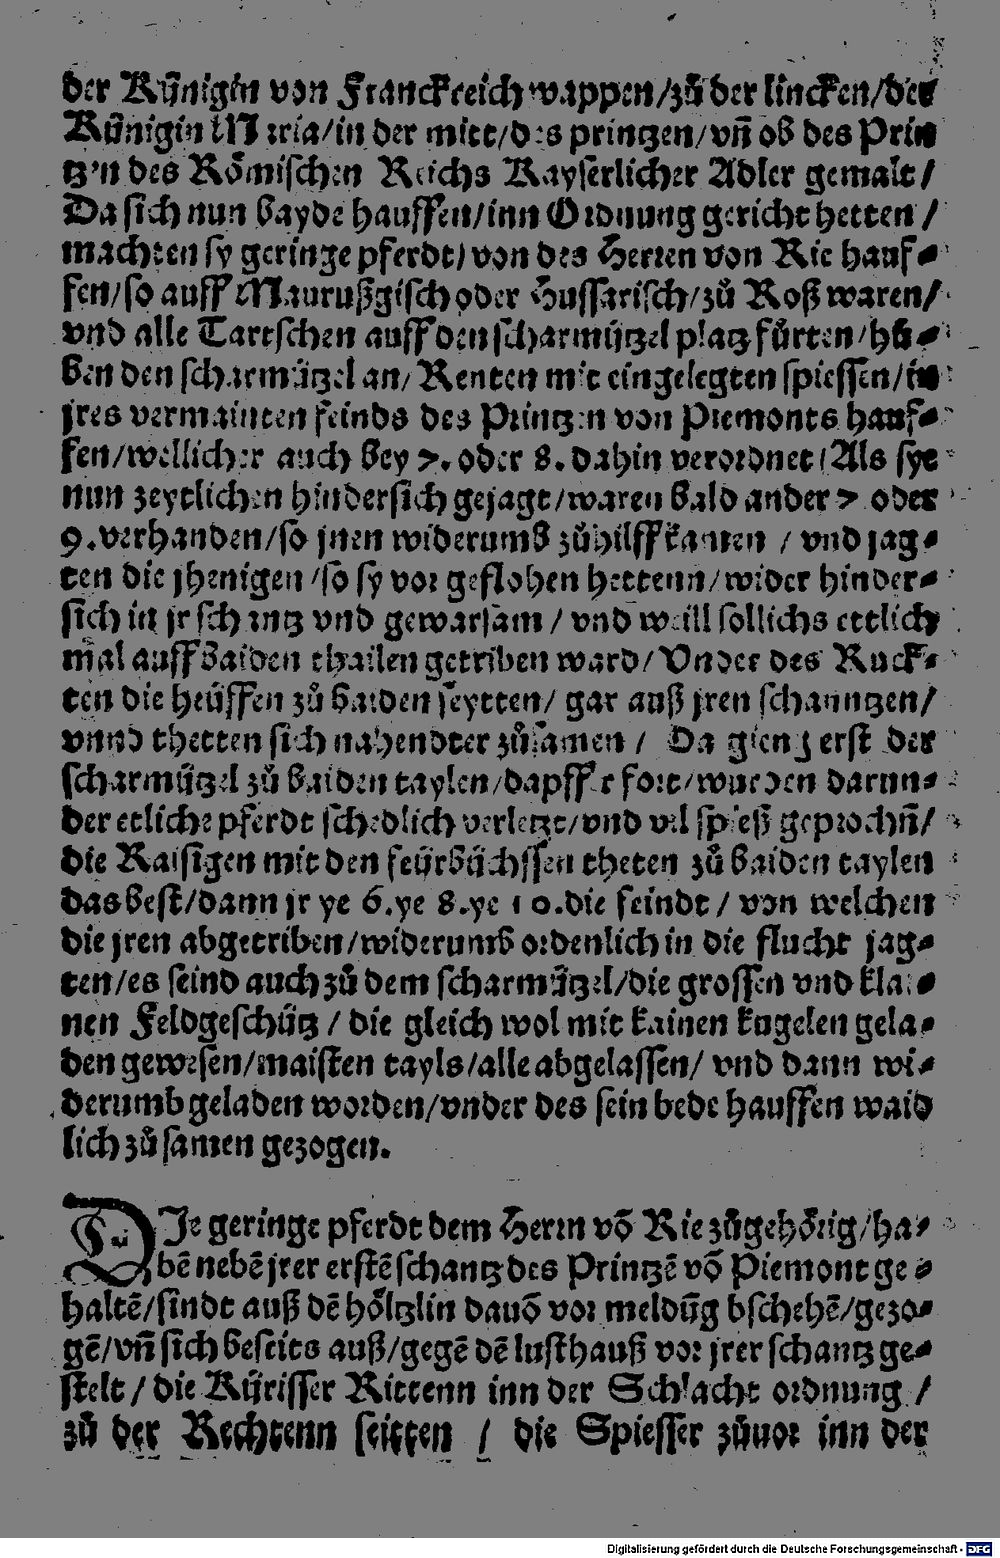 der Künigin von Franckreich wappen/zů der lincken/der
Künigin Maria/in der mitt/des printzen/vñ ob des Prin
tzen des Römischen Reichs Kayserlicher Adler gemalt/
Da sich nun bayde hauffen/inn Ordnung gericht hetten/
machten sy geringe pferdt/von des Herren von Rie hauf⸗
fen/so auff Maurußgisch oder Hussarisch/zů Roß waren/
vnd alle Tartschen auff den scharmützel platz fůrten/hů⸗
ben den scharmützel an/Renten mit eingelegten spiessen/in
jres vermainten feinds des Printzen von Piemonts hauf⸗
fen/wellicher auch bey 7. oder 8. dahin verordnet/Als sye
nun zeytlichen hindersich gejagt/waren bald ander 7 oder
9. verhanden/so jnen widerumb zůhilff kamen / vnd jag⸗
ten die jhenigen/so sy vor geflohen hettenn/wider hinder⸗
sich in jr schantz vnd gewarsam / vnd weill sollichs ettlich
mal auff baiden thailen getriben ward/Vnder des Ruck⸗
ten die heüffen zů baiden seytten/ gar auß jren schanntzen/
vnnd thetten sich nahendter zůsamen / Da gieng erst der
scharmützel zů baiden taylen/dapffer fort/wurden darun⸗
der etliche pferdt schedlich verletzt/vnd vil spieß geprochñ/
die Raisigen mit den feürbüchssen theten zů baiden taylen
das best/dann jr ye 6. ye 8. ye 10. die feindt / von welchen
die jren abgetriben/widerumb ordenlich in die flucht jag⸗
ten/es seind auch zů dem scharmützel/die grossen vnd klai⸗
nen Feldgeschütz / die gleich wol mit kainen kugelen gela⸗
den gewesen/maisten tayls/alle abgelassen/ vnd dann wi⸗
derumb geladen worden/vnder des sein bede hauffen waid
lich zů samen gezogen.
DIe geringe pferdt dem Herrn võ Rie zůgehörig/ha⸗
bẽ nebẽ jrer erstẽ schantz des Printzẽ võ Piemont ge⸗
haltẽ/sindt auß dẽ höltzlin dauõ vor meldũg bschehẽ/gezo⸗
gẽ/vñ sich beseits auß/gegẽ dẽ lusthauß vor jrer schantz ge⸗
stelt / die Kürisser Rittenn inn der Schlacht ordnung /
zů der Rechtenn seitten / die Spiesser zůuor inn der
Digitalisierung gefördert durch die Deutsche Forschungsgemeinschaft - DFG